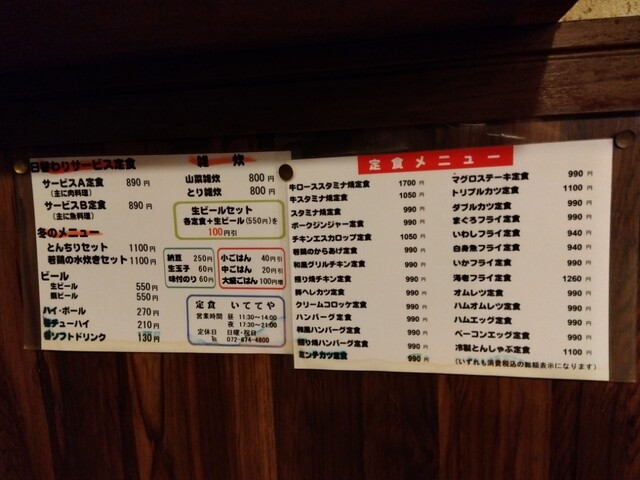 日替わりサービス定食
サービスA定食 890円
(主に肉料理)
サービスB定食 890円
(主に魚料理)
冬のメニュー
とんちりセット 1100円
若鶏の水炊きセット 1100円
ビール
生ビール 550円
瓶ビール 550円
ハイ・ボール 270円
酎チューハイ 210円
各ソフトドリンク 130円
雑炊
山菜雑炊 800円
とり雑炊 800円
生ビールセット
各定食+生ビール(550円)を
100円引
納豆 250円
生玉子 60円
味付のり 60円
小ごはん 40円引
中ごはん 20円引
大盛ごはん 100円増
定食 いててや
営業時間 昼 11:30~14:00
夜 17:30~21:00
定休日 日曜・祝日
℡ 072-874-4800
定食メニュー
牛ローススタミナ焼定食 1700円
牛スタミナ焼定食 1050円
スタミナ焼定食 990円
ポークジンジャー定食 990円
チキンエスカロップ定食 1050円
若鶏のからあげ定食 990円
和風グリルチキン定食 990円
照り焼チキン定食 990円
豚ヘレカツ定食 990円
クリームコロッケ定食 990円
ハンバーグ定食 990円
和風ハンバーグ定食 990円
照り焼ハンバーグ定食 990円
ミンチカツ定食 990円
マグロステーキ定食 990円
トリプルカツ定食 1100円
ダブルカツ定食 990円
まぐろフライ定食 990円
いわしフライ定食 940円
白身魚フライ定食 940円
いかフライ定食 990円
海老フライ定食 1260円
オムレツ定食 990円
ハムオムレツ定食 990円
ハムエッグ定食 990円
ベーコンエッグ定食 990円
冷製とんしゃぶ定食 1100円
(いずれも消費税込の総額表示になります)